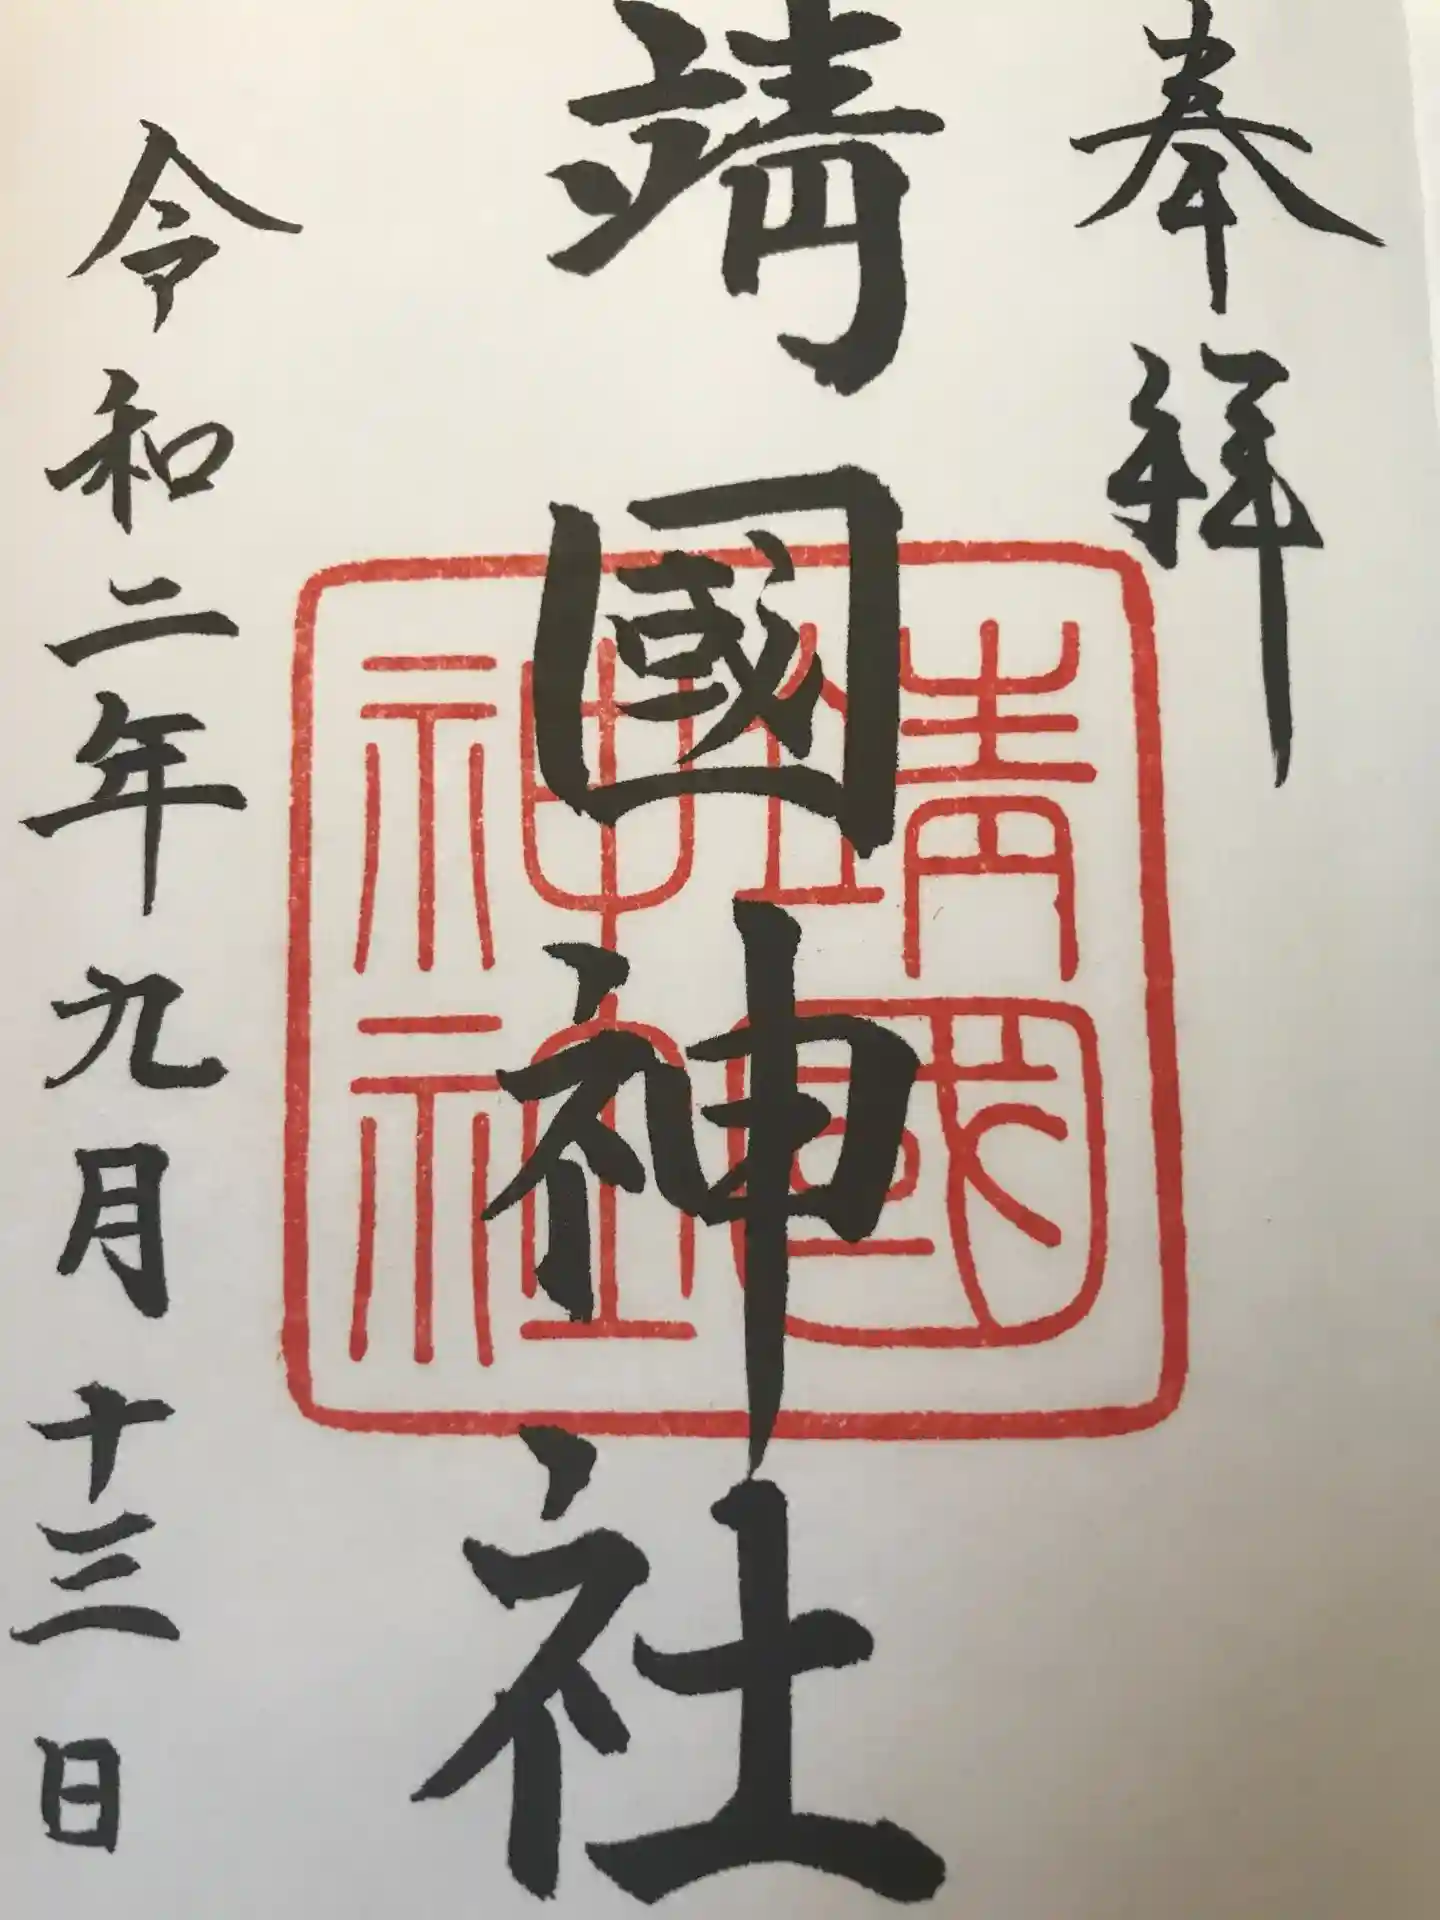 奉拜
靖國神社
靖國
神社
令和二年九月十三日